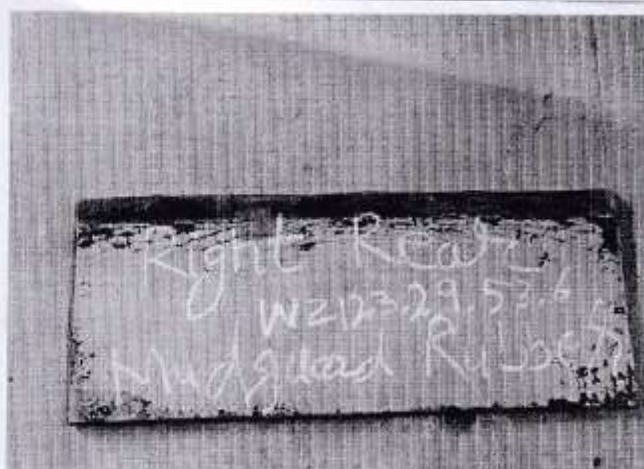 Right Rear
W212.3.29.53.6
Mudguard Rubber